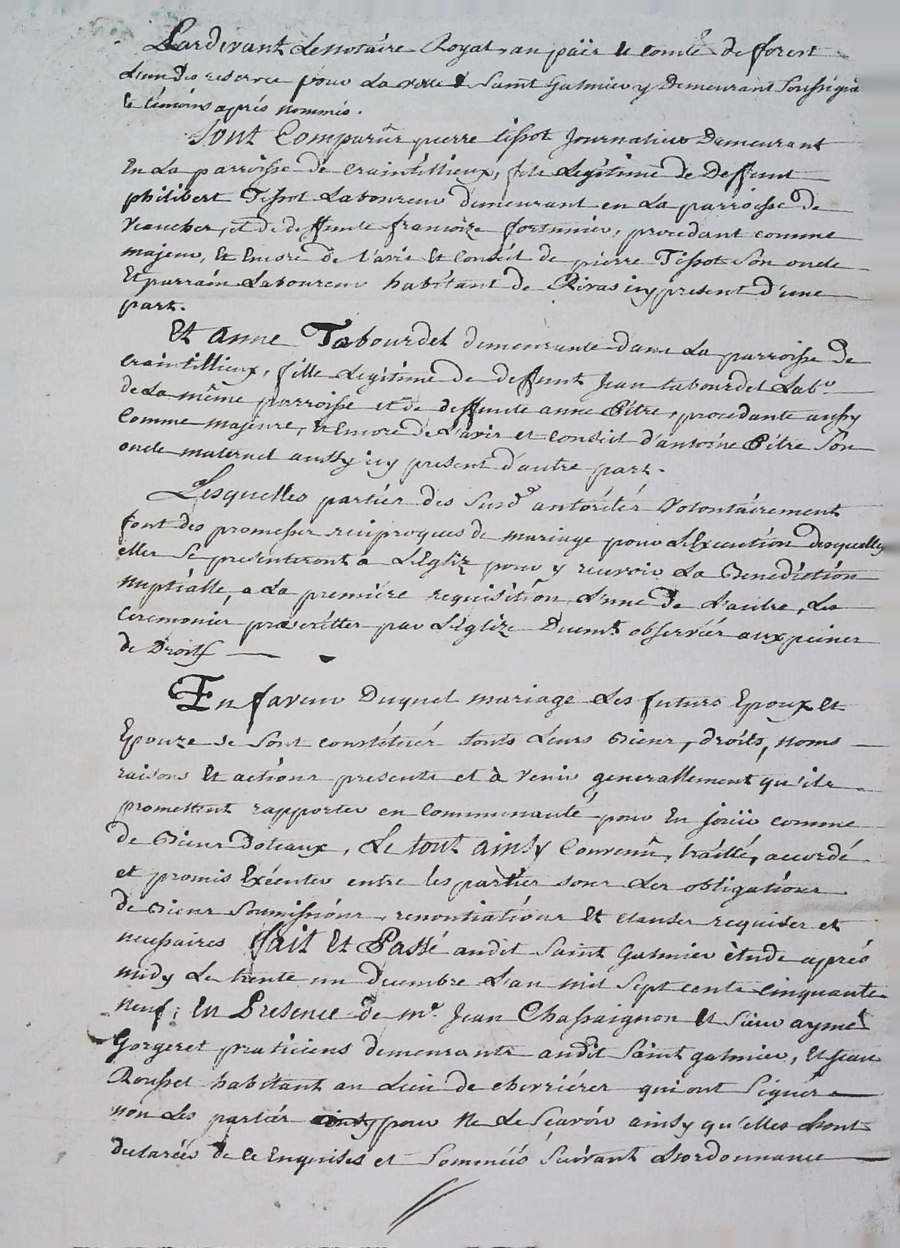 Pardevant Le notaire Royal au païs & comté de forest
L'un des reservés pour La ville de Saint Galmier y Demeurant Soussigné
& témoins après nommés.
Sont Comparus pierre tissot Journalier Demeurant
En La parroisse de Craintillieux, fils Legitime de Deffunt
philibert Tissot Laboureur demeurant en La parroisse de
Veauche, et de deffunte francoize fortunier, procedant comme
majeur, Et Encore de l'avis Et Conseil de pierre Tissot Son oncle
Et parrain Laboureur habitant de Rivas icy present d'une
part.
Et anne Tabourdel demeurante dans La parroisse de
Craintillieux, fille Legitime de deffunt Jean tabourdel Labr.
de La même parroisse et de deffunte anne Pitre, procedante aussy
Comme majeure, & Encore de L'avis et Conseil d'antoine Pitre Son
oncle maternel aussy icy present d'autre part.
Lesquelles parties des Susd. autôrités Volontairement
font des promesses reciproques de mariage pour L'Execution desquelles
elles Se presenteront a L'Eglize pour y recevoir La Benediction
nuptialle, a La premiere requisition L'une de L'autre, Les
Ceremonies prescrittes par L'Eglize Deuemt. observées aux peines
de Droits
En faveur Duquel mariage Les futurs Epoux et
Epouze se Sont constitués touts Leurs Biens, droits, noms
raisons Et actions presents et à venir generallement qu'ils
promettent rapporter en Communauté pour En joüir comme
de Biens Dotaux, Le tout ainsy Convenu, traitté, accordé
et promis Exécuter entre les parties sous Les obligations
de Biens Soumissions, renontiations Et clauses requises et
necessaires fait Et Passé audit Saint Galmier étude après
midy Le trente un Decembre L'an mil Sept cents cinquante
neuf; En Presence de mr. Jean Chassaignon Et Sieur aymé
Gorgeret praticiens demeurants audit Saint galmier, Et Jean
Rousset habitant au Lieu de chevriéres qui ont Signés
non Les parties pour ne Le Sçavoir ainsy qu'elles L'ont
declarées de ce Enquises et Sommées Suivant L'ordonnance